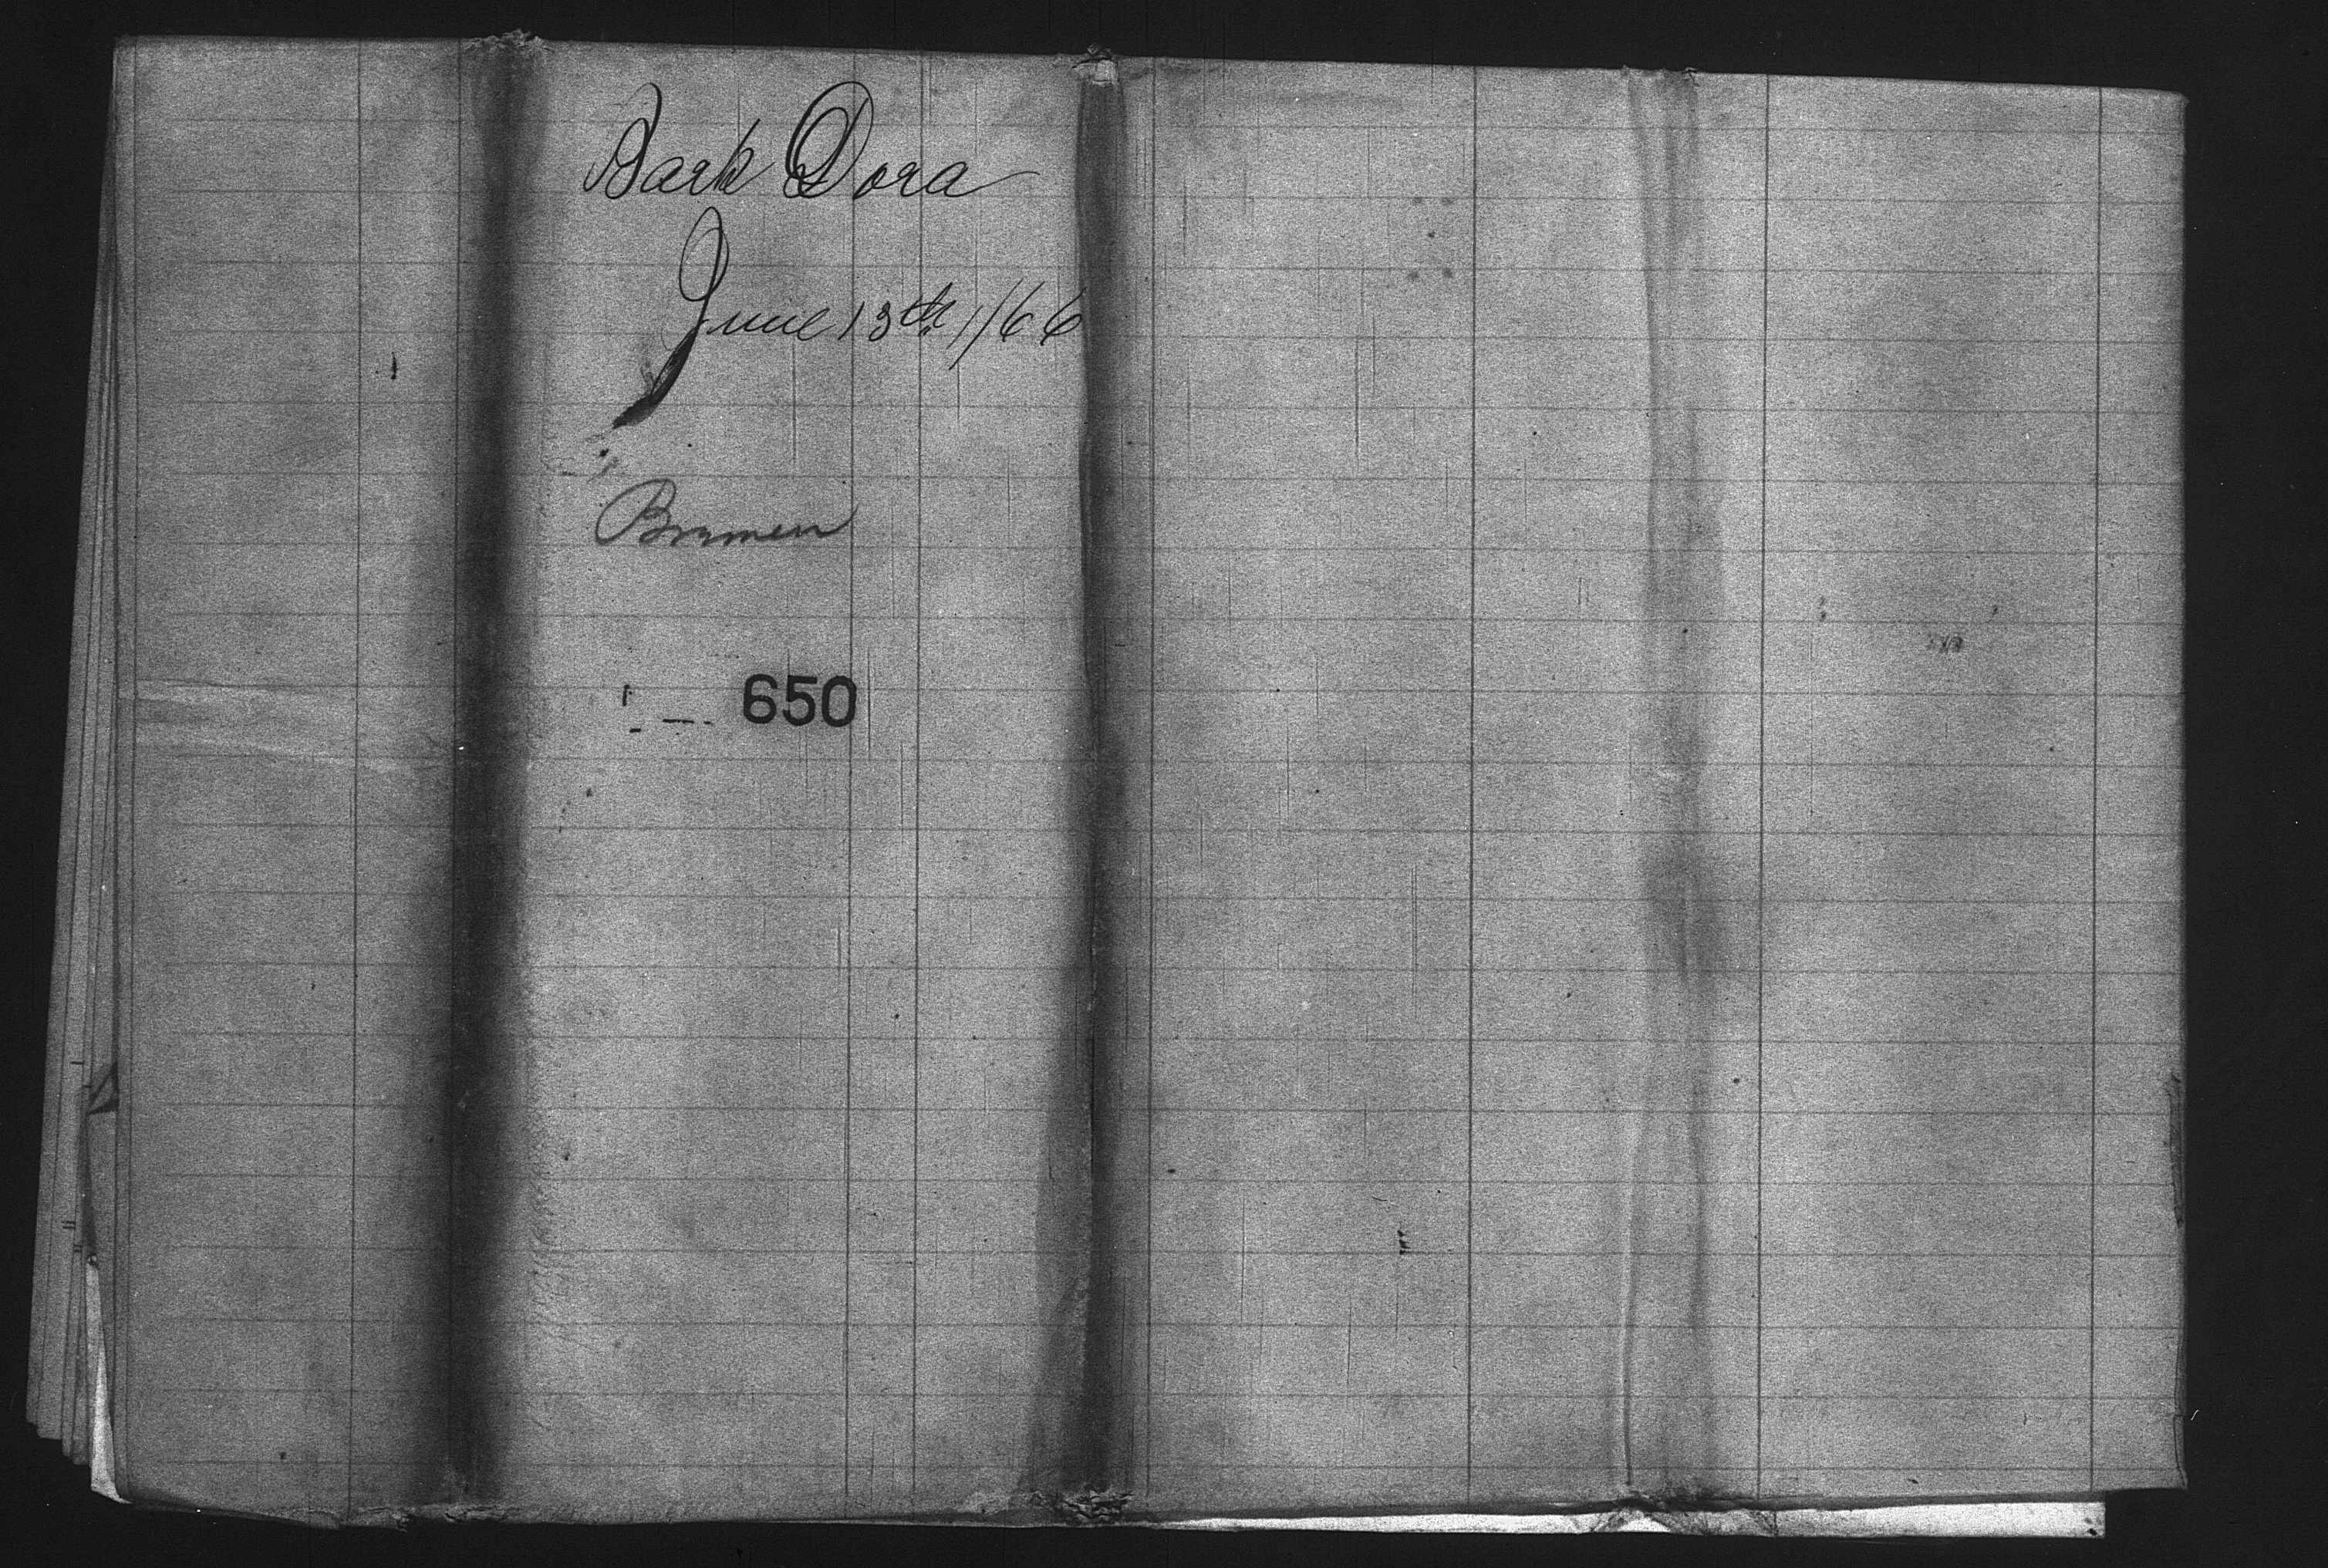 Bark Dora
June 13th //66
Bremen
650